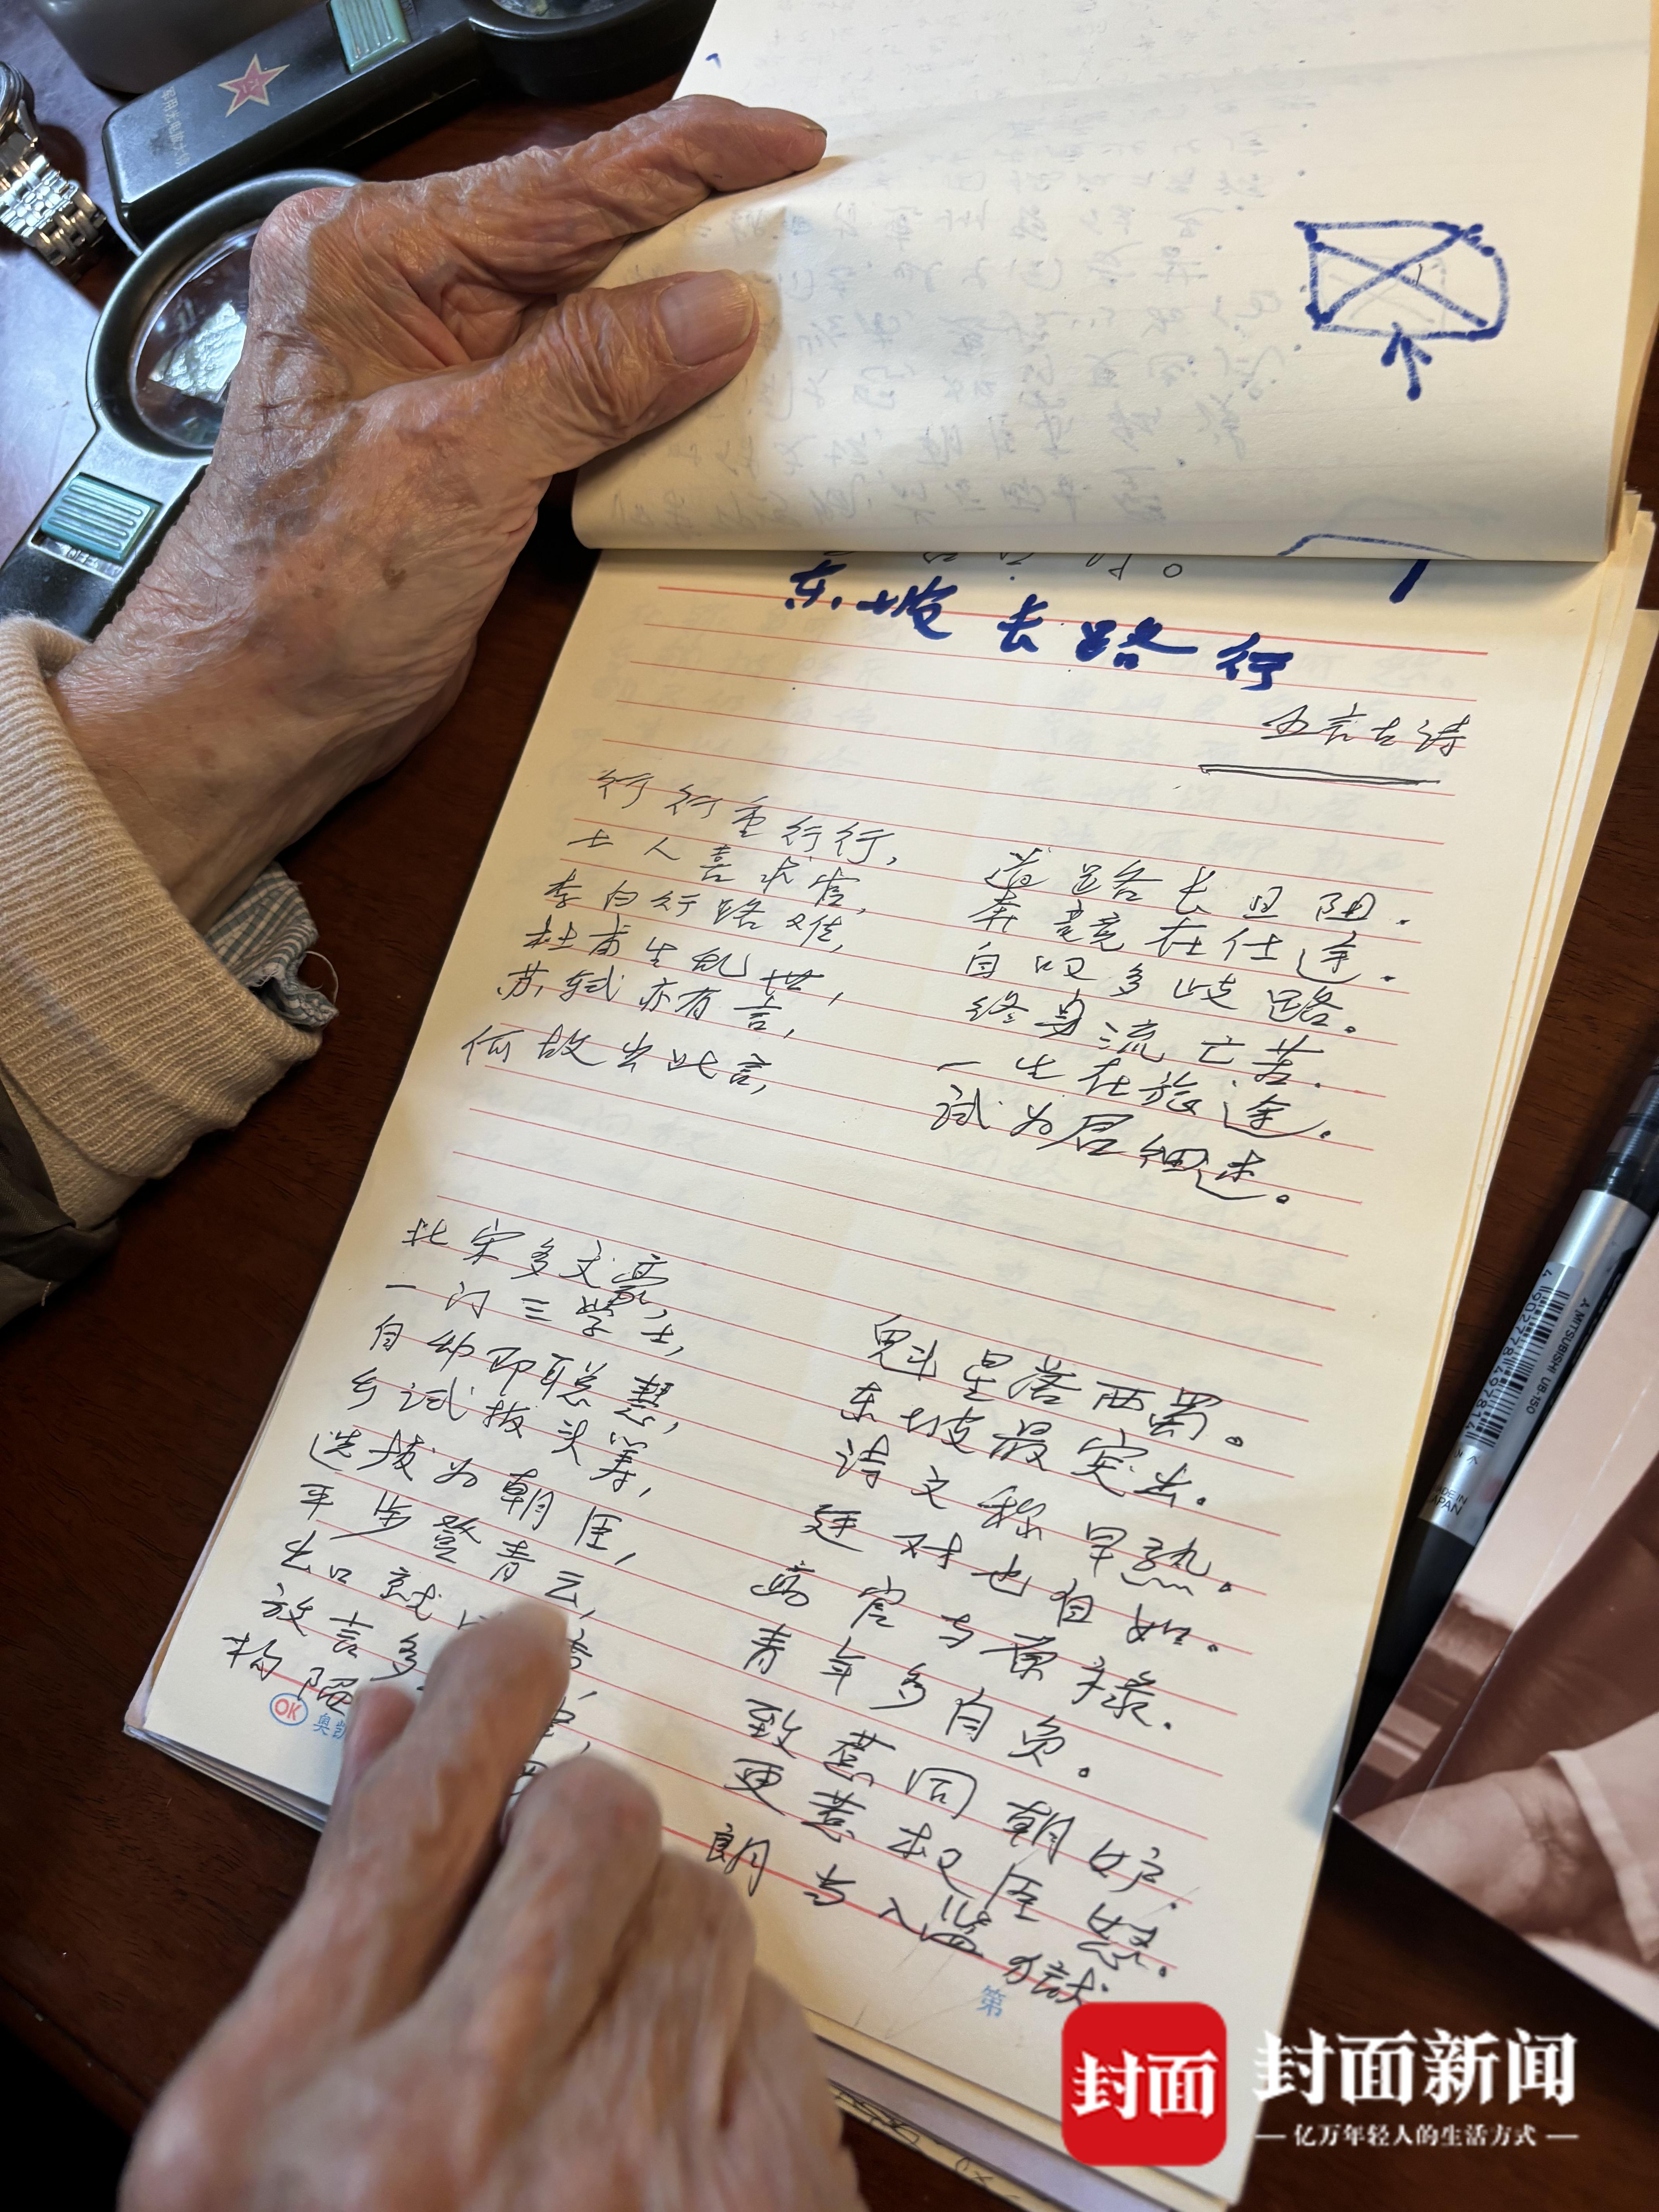 东坡长路行
五言古诗
行行重行行，道路长且阻。
士人喜求官，奔竞在仕途。
李白行路难，自叹多歧路。
杜甫生乱世，终身流亡苦。
苏轼亦有言，一生在旅途。
何故出此言，试为君细述。
北宋多文豪，魁星落西蜀。
一门三学士，东坡最突出。
自幼即聪慧，诗文称早熟。
乡试拔头筹，廷对也自如。
选拔为朝臣，高官与厚禄。
平步登青云，青年多自负。
出口就 致惹同朝妒。
放言多 更惹权臣怒。
构陷 朗当入监狱
OK 奥凯
第
OFF
MITSUBISHI UB-150
4 902778 497814
MADE IN JAPAN
封面
封面新闻
亿万年轻人的生活方式